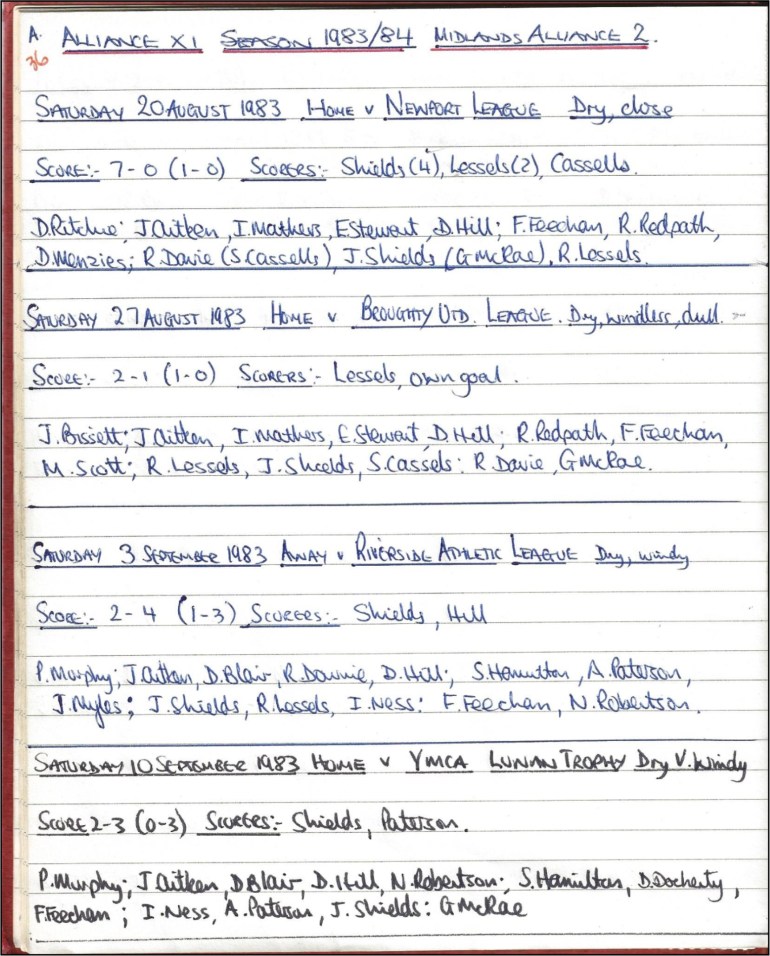 A. ALLIANCE XI SEASON 1983/84 MIDLANDS ALLIANCE 2.
36
SATURDAY 20 AUGUST 1983 HOME v NEWPORT LEAGUE Dry, close
SCORE:- 7-0 (1-0) SCORERS:- Shields (4), Lessels (2), Cassells.
D.Ritchie; J.Aitken, I.Mathers, E.Stewart, D.Hill; F.Feechan, R.Redpath,
D.Menzies; R.Davie (S.Cassells), J.Shields (G.McRae), R.Lessels.
SATURDAY 27 AUGUST 1983 HOME v BROUGHTY UTD. LEAGUE. Dry, windless, dull.
SCORE:- 2-1 (1-0) SCORERS:- Lessels, own goal.
J.Bissett; J.Aitken, I.Mathers, E.Stewart, D.Hill; R.Redpath, F.Feechan,
M.Scott; R.Lessels, J.Shields, S.Cassels: R.Davie, G.McRae.
SATURDAY 3 SEPTEMBER 1983 AWAY v RIVERSIDE ATHLETIC LEAGUE Dry, windy
SCORE:- 2-4 (1-3) SCORERS:- Shields, Hill
P.Murphy; J.Aitken, D.Blair, R.Downie, D.Hill; S.Hamilton, A.Paterson,
J.Myles; J.Shields, R.Lessels, I.Ness: F.Feechan, N.Robertson.
SATURDAY 10 SEPTEMBER 1983 HOME v YMCA LUNAN TROPHY Dry V.Windy
SCORE 2-3 (0-3) SCORERS:- Shields, Paterson.
P.Murphy; J.Aitken, D.Blair, D.Hill, N.Robertson; S.Hamilton, D.Docherty,
F.Feechan; I.Ness, A.Paterson, J.Shields: G.McRae